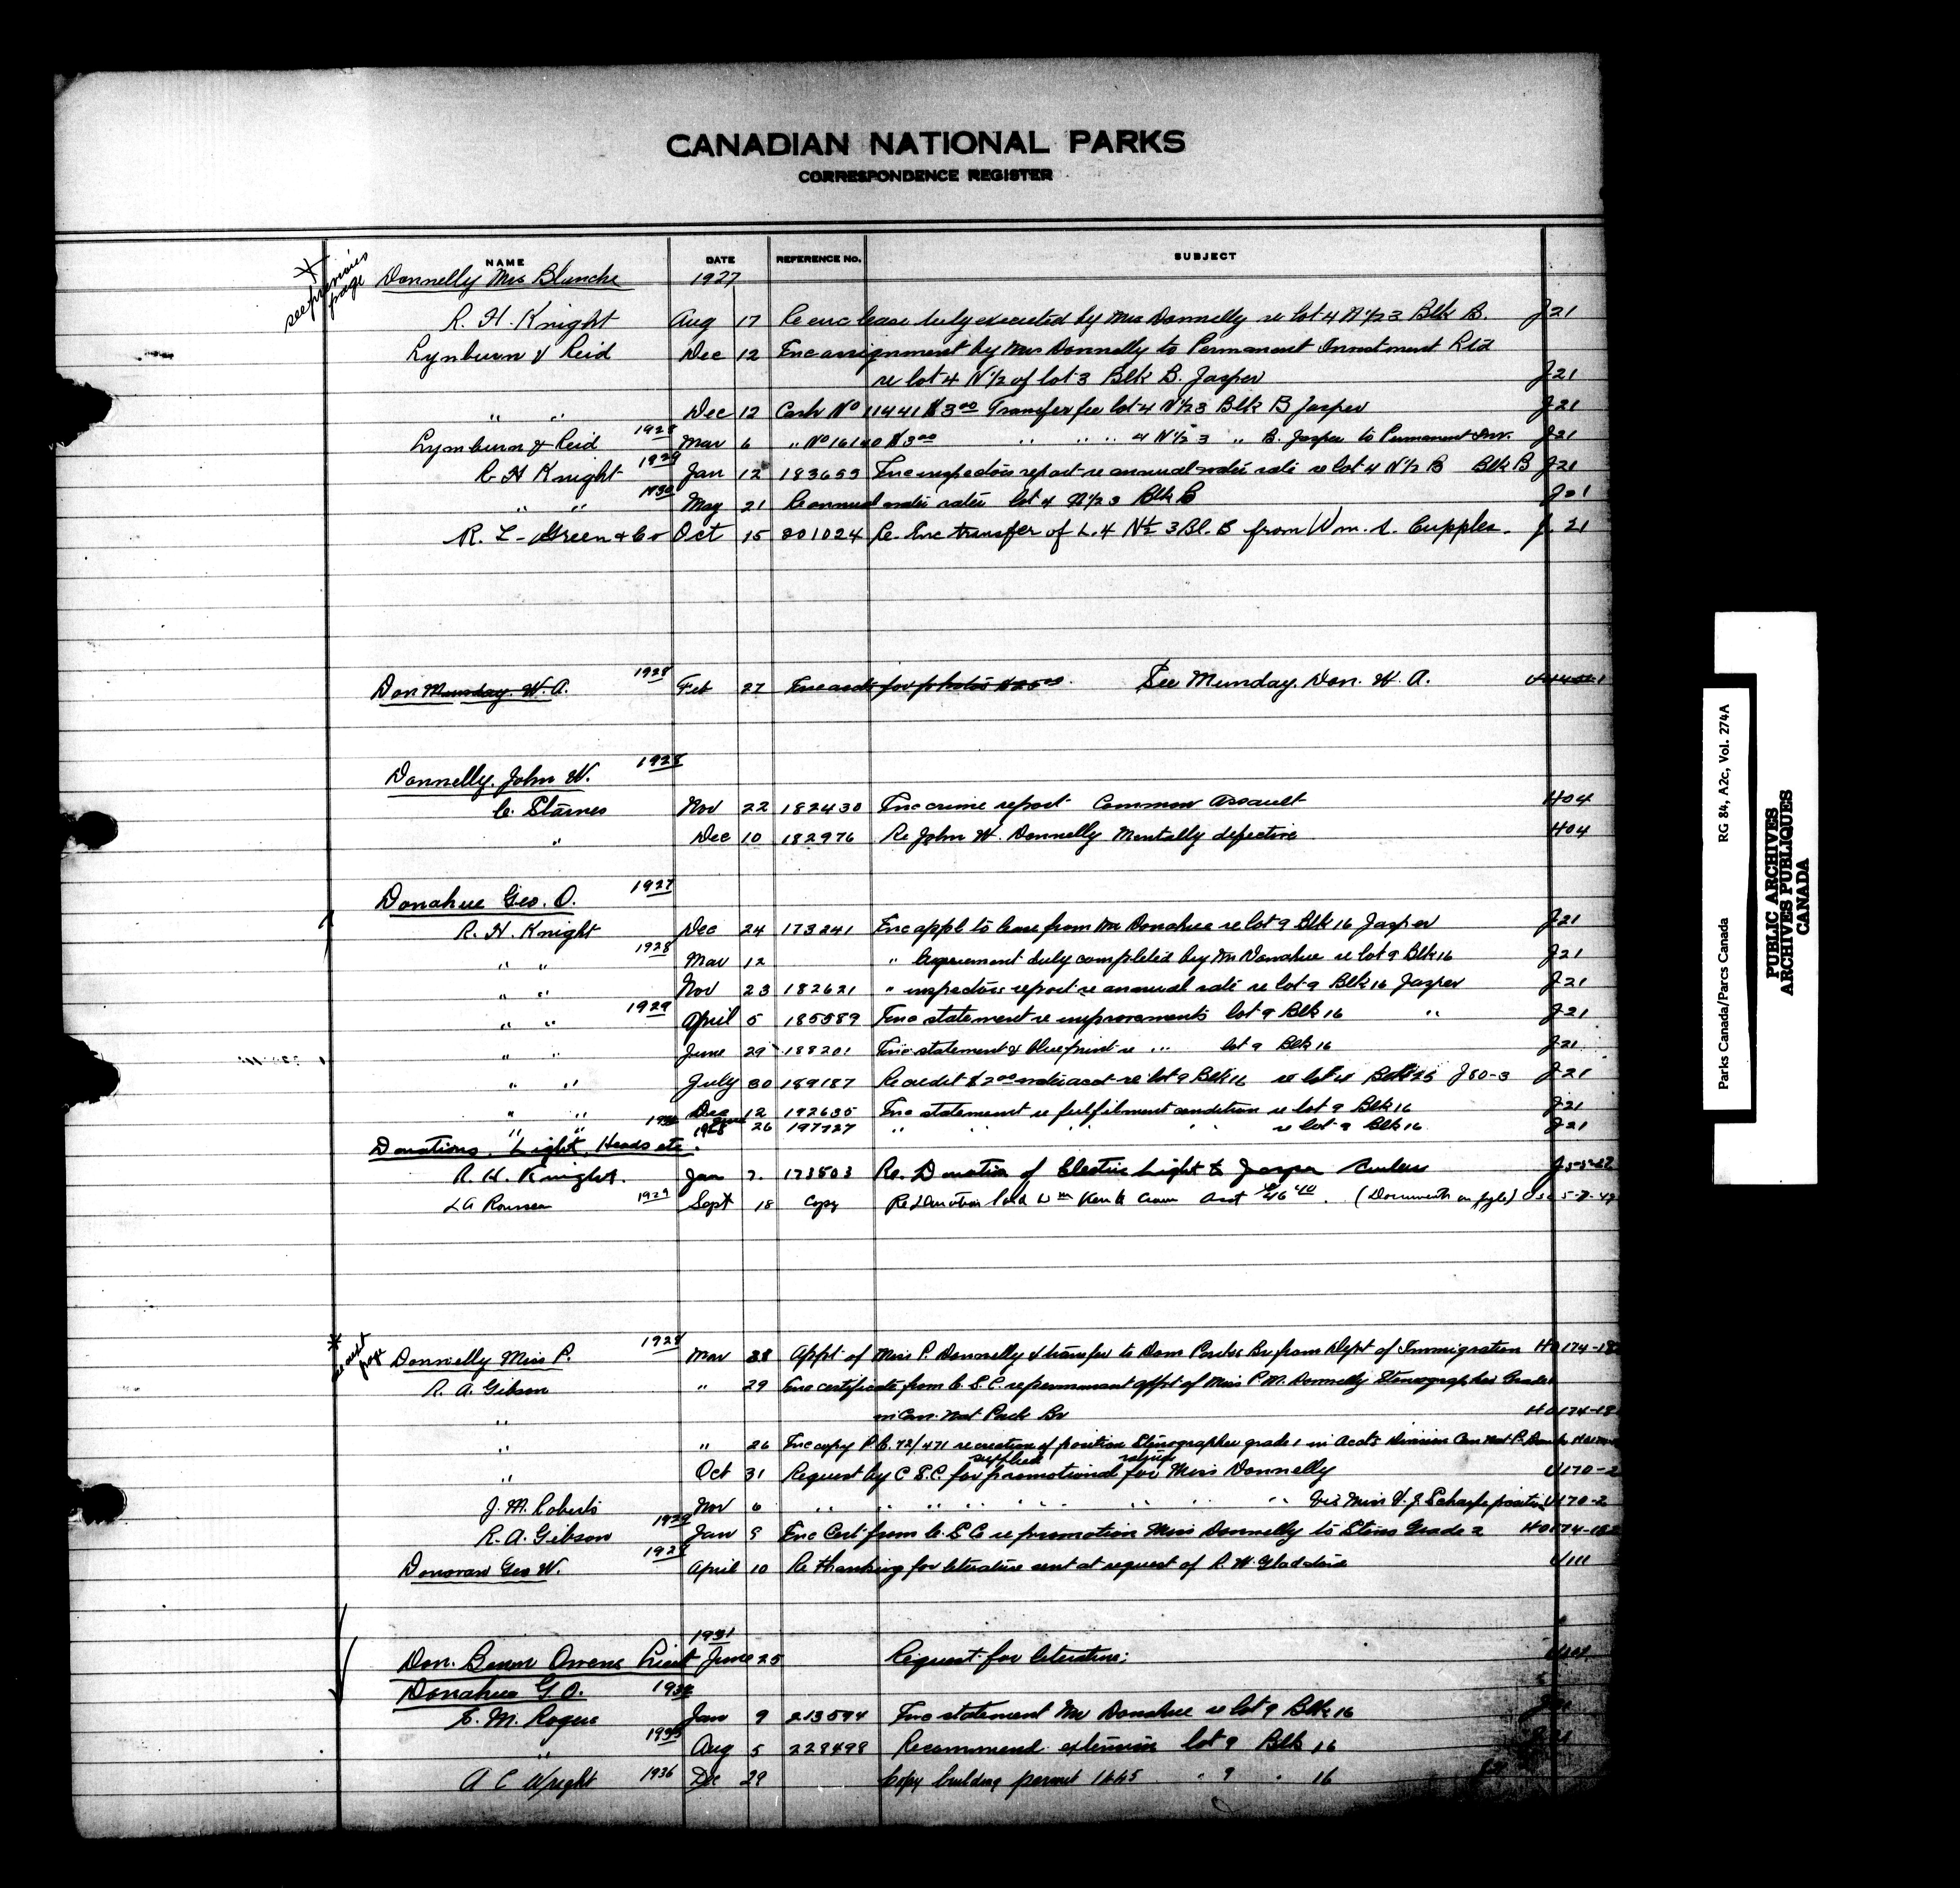 CANADIAN NATIONAL PARKS
CORRESPONDENCE REGISTER
NAME DATE REFERENCE No. SUBJECT
* see previous page
Donnelly Mrs Blanche 1927
R. H. Knight Aug 17 Re enc lease duly executed by Mrs Donnelly re lot 4 N 1/2 3 Blk B. J 21
Lynburn & Reid Dec 12 Enc assignment by Mrs Donnelly to Permanent Investment Ltd
re lot 4 N 1/2 of lot 3 Blk B. Jasper J 21
" " Dec 12 Cash No 11441 $3 00 Transfer fee lot 4 N 1/2 3 Blk B Jasper J 21
Lymburn & Reid 1928 Mar 6 " No 16140 $3 00 " " " 4 N 1/2 3 " B. Jasper to Permanent Inv. J 21
R H Knight 1929 Jan 12 183653 Enc inspectors report re annual water rate re lot 4 N 1/2 B Blk B J 21
" " 1930 May 21 Re annual water rates lot 4 N 1/2 3 Blk B J 21
R. L. Green & Co Oct 15 201024 Re. Enc transfer of L. 4 N 1/2 3 Bl. B from Wm. S. Cupples. J. 21
Don Munday W. A. 1928 Feb 27 Enc accts for photos $25 00. See Munday. Don. W. A.
Donnelly, John W. 1928
C. Starnes Nov 22 182430 Enc crime report Common Assault H04
" Dec 10 182976 Re John W. Donnelly Mentally defective H04
Donahue Geo. O. 1927
R. H. Knight Dec 24 173241 Enc appl. to lease from Mr Donahue re lot 9 Blk 16 Jasper J 21
" " 1928 Mar 12 " Agreement duly completed by Mr Donahue re lot 9 Blk 16 J 21
" " Nov 23 182621 " inspectors report re annual rate re lot 9 Blk 16 Jasper J 21
" " 1929 April 5 185589 Enc statement re improvements lot 9 Blk 16 " J 21
" " June 29 188201 Enc statement & blueprint re " lot 9 Blk 16 J 21
" " July 30 189187 Re credit $2 00 water acct re lot 9 Blk 16 re lot 4 Blk 25 J80-3 J 21
" " Dec 12 192635 Enc statement re fulfilment condition re lot 9 Blk 16 J 21
" " June 26 197727 " " " " re lot 9 Blk 16 J 21
Donations. Light, Heads etc.
R. H. Knight. Jan 7. 173503 Re. Donation of Electric Light to Jasper
1929 Sept 18 Copy Re Donation (Documents on fyle)
* see next page
Donnelly Miss P. 1928 Mar 28 Appt of Miss P. Donnelly & transfer to Dom Parks Br from Dept of Immigration H0174-18
R. A. Gibson " 29 Enc certificate from C. S. C. re permanent appt of Miss P. M. Donnelly Stenographer Grade 1
in Can. Nat Park Br H0174-18
" " 26 Enc copy P. C. 72/471 re creation of position Stenographer grade 1 in Accts Division Can Nat P. Branch
supplied
" Oct 31 Request by C S.C. for promotional for Miss Donnelly U170-2
J. M. Roberts Nov 6 " " " " " " " " " vice Miss V. J. Scharfe position U170-2
R. A. Gibson 1929 Jan 9 Enc Cert from C. S C re promotion Miss Donnelly to Steno Grade 2 H0174-182
Donovan Geo W. 1928 April 10 Re thanking for literature sent at request of R. W. Gladstone U111
1931
Don. Benn Owens Lieut June 25 Request for literature.
Donahue G. O. 1932
E. M. Rogers Jan 9 213594 Enc statement Mr Donahue re lot 9 Blk 16
" 1935 Aug 5 228498 Recommend extension lot 9 Blk 16
A C Wright 1936 Dec 29 Copy building permit 1665 " 9 " 16
Parks Canada/Parcs Canada RG 84, A2c, Vol. 274A
PUBLIC ARCHIVES
ARCHIVES PUBLIQUES
CANADA